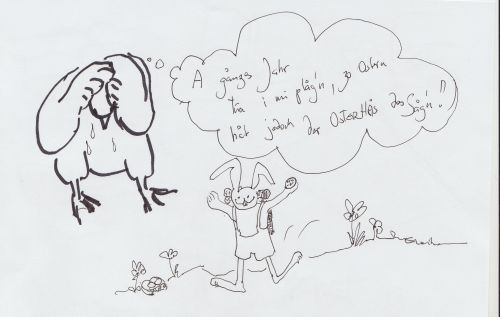 A gånzes Jahr
tua i mi plåg'n, zo Ostern
håt jedoch der OSTERHÅS des Såg'n!!